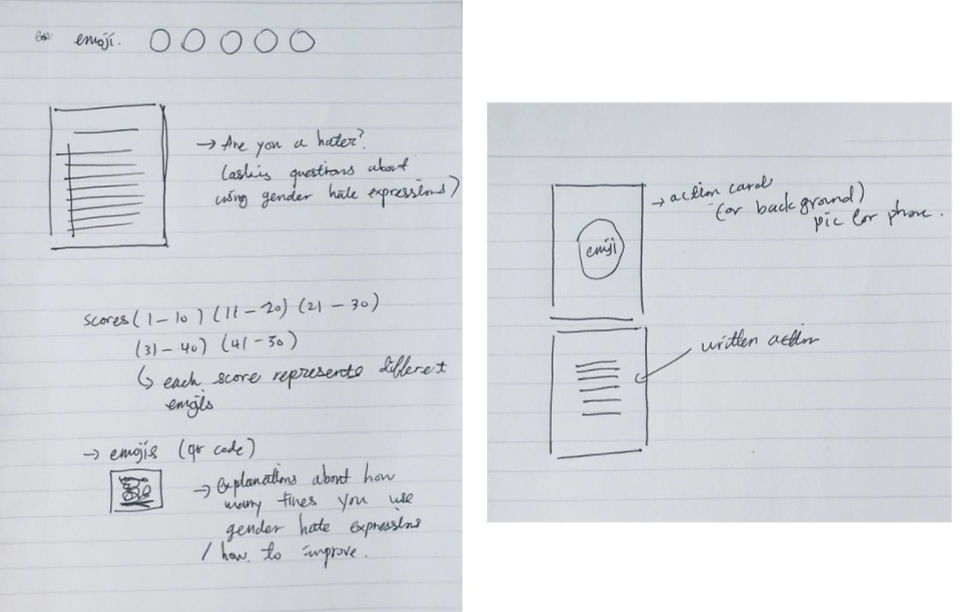 emoji.
→ Are you a hater?
(asking questions about
using gender hate expressions)
scores (1-10) (11-20) (21-30)
(31-40) (41-50)
↳ each score represents different
emojis
→ emojis (qr code)
→ Explanations about how
many times you use
gender hate expressions
/ how to improve.
→ action card
(or background)
pic for phone.
emoji
written action